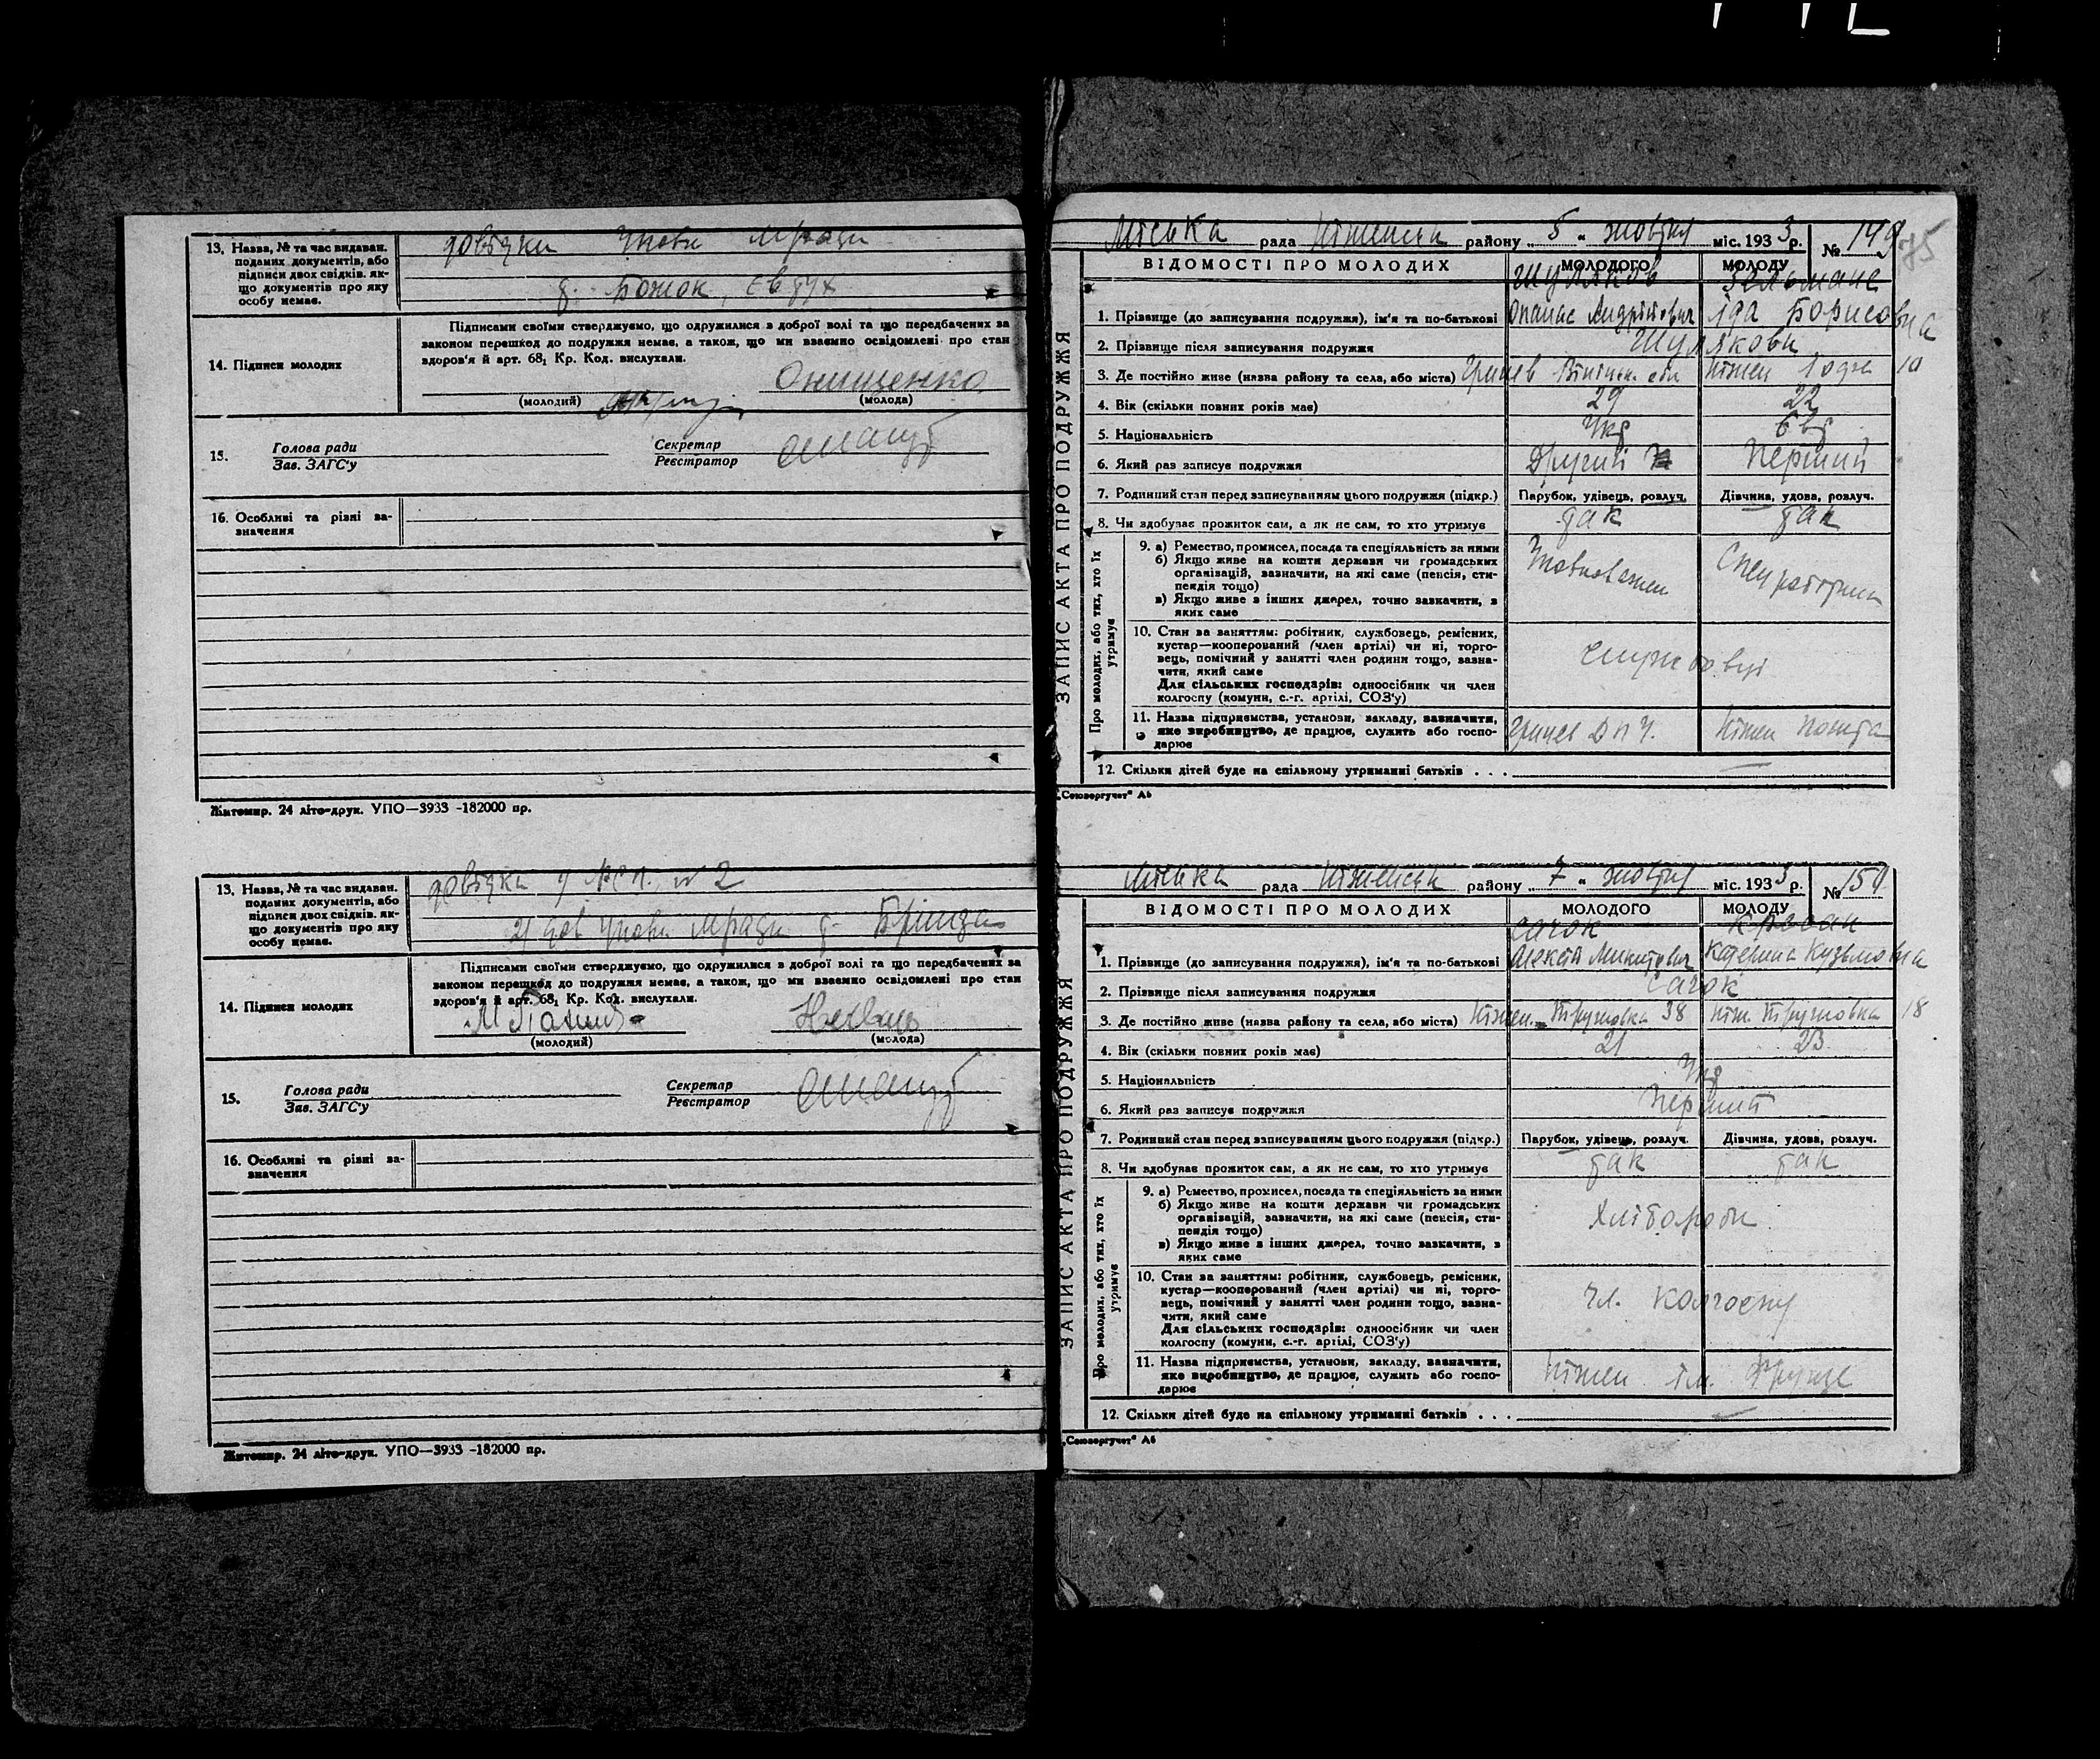 13. Назва, № та час видаван.
поданих документів, або
підписи двох свідків. як-
що документів про яку
особу немає.
довідки Упов. мради
д. Божок, Євдух
Підписами своїми стверджуємо, що одружилися з доброї волі та що передбачених за
законом перешкод до подружжя немає, а також, що ми взаємно освідомлені про стан
здоров'я й арт. 68₁ Кр. Код. вислухали.
14. Підписи молодих
Онищенко
(молодий)
(молода)
15.
Голова ради
Зав. ЗАГС'у
Секретар
Реєстратор
16. Особливі та різні за-
значення
Житомир. 24 літо-друк. УПО—3933 -182000 пр.
13. Назва, № та час видаван.
поданих документів, або
підписи двох свідків. як-
що документів про яку
особу немає.
довідка № 2
2) дов Упов. мради д.
Підписами своїми стверджуємо, що одружилися з доброї волі та що передбачених за
законом перешкод до подружжя немає, а також, що ми взаємно освідомлені про стан
здоров'я й арт. 68₁ Кр. Код. вислухали.
14. Підписи молодих
(молодий)
(молода)
15.
Голова ради
Зав. ЗАГС'у
Секретар
Реєстратор
16. Особливі та різні за-
значення
Житомир. 24 літо-друк. УПО—3933 -182000 пр.
ЗАПИС АКТА ПРО ПОДРУЖЖЯ
Міська рада Ніженськ району „ 5 “ жовтня міс. 1933 р. № 149
75
ВІДОМОСТІ ПРО МОЛОДИХ МОЛОДОГО МОЛОДУ
Шуляков Зельманс
1. Прізвище (до записування подружжя), ім'я та по-батькові Опанас Андрійович Іда Борисовна
2. Прізвище після записування подружжя Шулякови
3. Де постійно живе (назва району та села, або міста) Вінницьк. обл Ніжен 10
4. Вік (скільки повних років має) 29 22
5. Національність Укр Євр
6. Який раз записує подружжя Другий Перший
7. Родинний стан перед записуванням цього подружжя (підкр.) Парубок, удівець, розлуч. Дівчина, удова, розлуч.
8. Чи здобуває прожиток сам, а як не сам, то хто утримує так так
Про молодих, або тих, хто їх
утримує
9. а) Ремество, промисел, посада та спеціяльність за ними
б) Якщо живе на кошти держави чи громадських
організацій, зазначити, на які саме (пенсія, сти-
пендія тощо)
в) Якщо живе з інших джерел, точно зазначити, з
яких саме
Уповноважен
10. Стан за заняттям: робітник, службовець, ремісник,
кустар—кооперований (член артілі) чи ні, торго-
вець, помічний у занятті член родини тощо, зазна-
чити, який саме
Для сільських господарів: одноосібник чи член
колгоспу (комуни, с.-г. артілі, СОЗ'у)
службовці
11. Назва підприємства, установи, закладу, зазначити,
яке виробництво, де працює, служить або госпо-
дарює
Ніжен пошта
12. Скільки дітей буде на спільному утриманні батьків . . .
„Союзоргучет“ А6
ЗАПИС АКТА ПРО ПОДРУЖЖЯ
Міська рада Ніженськ району „ 7 “ жовтня міс. 1933 р. № 150
ВІДОМОСТІ ПРО МОЛОДИХ МОЛОДОГО МОЛОДУ
Сачок
1. Прізвище (до записування подружжя), ім'я та по-батькові Алексій Микитович Катерина Кузьмовна
2. Прізвище після записування подружжя Сачок
3. Де постійно живе (назва району та села, або міста) Ніжен. 38 Ніж. 18
4. Вік (скільки повних років має) 21 23
5. Національність Укр
6. Який раз записує подружжя Перший
7. Родинний стан перед записуванням цього подружжя (підкр.) Парубок, удівець, розлуч. Дівчина, удова, розлуч.
8. Чи здобуває прожиток сам, а як не сам, то хто утримує так так
Про молодих, або тих, хто їх
утримує
9. а) Ремество, промисел, посада та спеціяльність за ними
б) Якщо живе на кошти держави чи громадських
організацій, зазначити, на які саме (пенсія, сти-
пендія тощо)
в) Якщо живе з інших джерел, точно зазначити, з
яких саме
Хлібороби
10. Стан за заняттям: робітник, службовець, ремісник,
кустар—кооперований (член артілі) чи ні, торго-
вець, помічний у занятті член родини тощо, зазна-
чити, який саме
Для сільських господарів: одноосібник чи член
колгоспу (комуни, с.-г. артілі, СОЗ'у)
чл. колгоспу
11. Назва підприємства, установи, закладу, зазначити,
яке виробництво, де працює, служить або госпо-
дарює
Ніжен ім. Фрунзе
12. Скільки дітей буде на спільному утриманні батьків . . .
„Союзоргучет“ А6